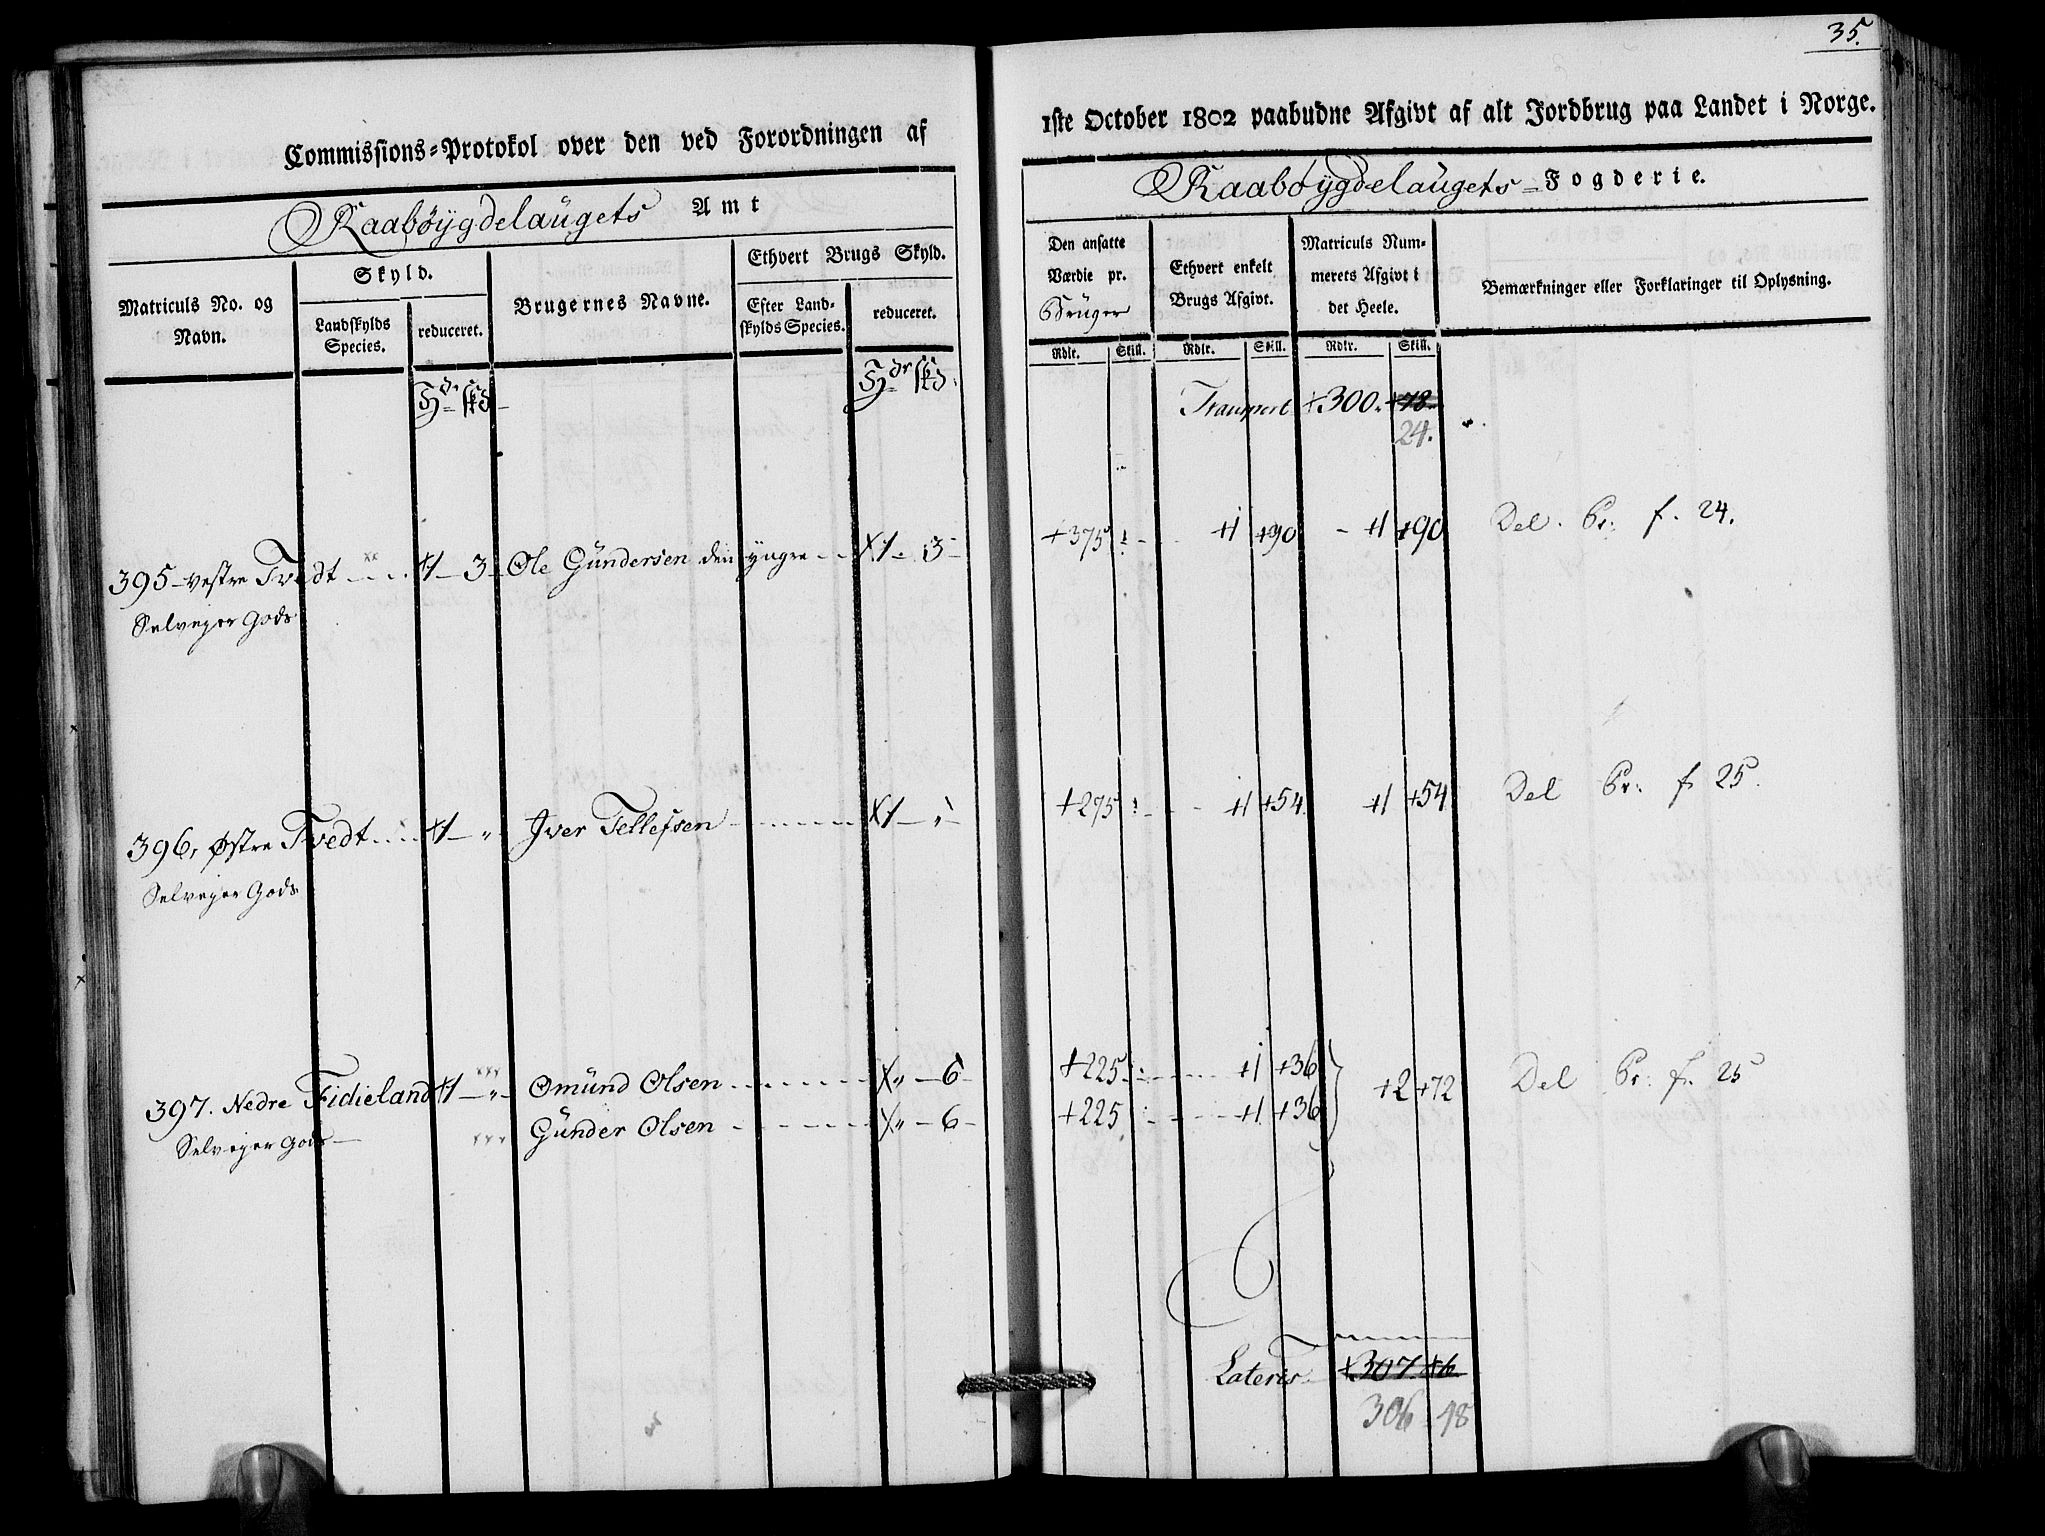 35.
Commissions-Protokol over den ved Forordningen af
1ste October 1802 paabudne Afgivt af alt Jordbrug paa Landet i Norge.
Raabøygdelaugets Amt
Raabøygdelaugets Fogderie.
Matriculs No. og Navn.
Skyld.
Landskylds Species.
reduceret.
Brugernes Navne.
Ethvert Brugs Skyld.
Efter Landskylds Species.
reduceret.
Den ansatte Værdie pr. Bruger
Ethvert enkelt Brugs Afgivt.
Matriculs Nummerets Afgivt i det Heele.
Bemærkninger eller Forklaringer til Oplysning.
Rdlr. Skill. Rdlr. Skill. Rdlr. Skill.
Transport 300. 78.
24.
395 Vestre Tvedt 1 – 3 Ole Gündersen den yngre 1 – 3 375 1 90 1 90 Del. Pr: f. 24.
Selveyer Gods
396, Østre Tvedt 1 – „ Iver Tellefsen 1 – „ 275 1 54 1 54 Del Pr: f. 25.
Selveyer Gods
397. Nedre Fidieland 1 – „ Omünd Olsen „ – 6 225 1 36 2 72 Del Pr: f. 25
Selveyer Gods Günder Olsen „ – 6 225 1 36
Lateris 307. 6.
306 - 48